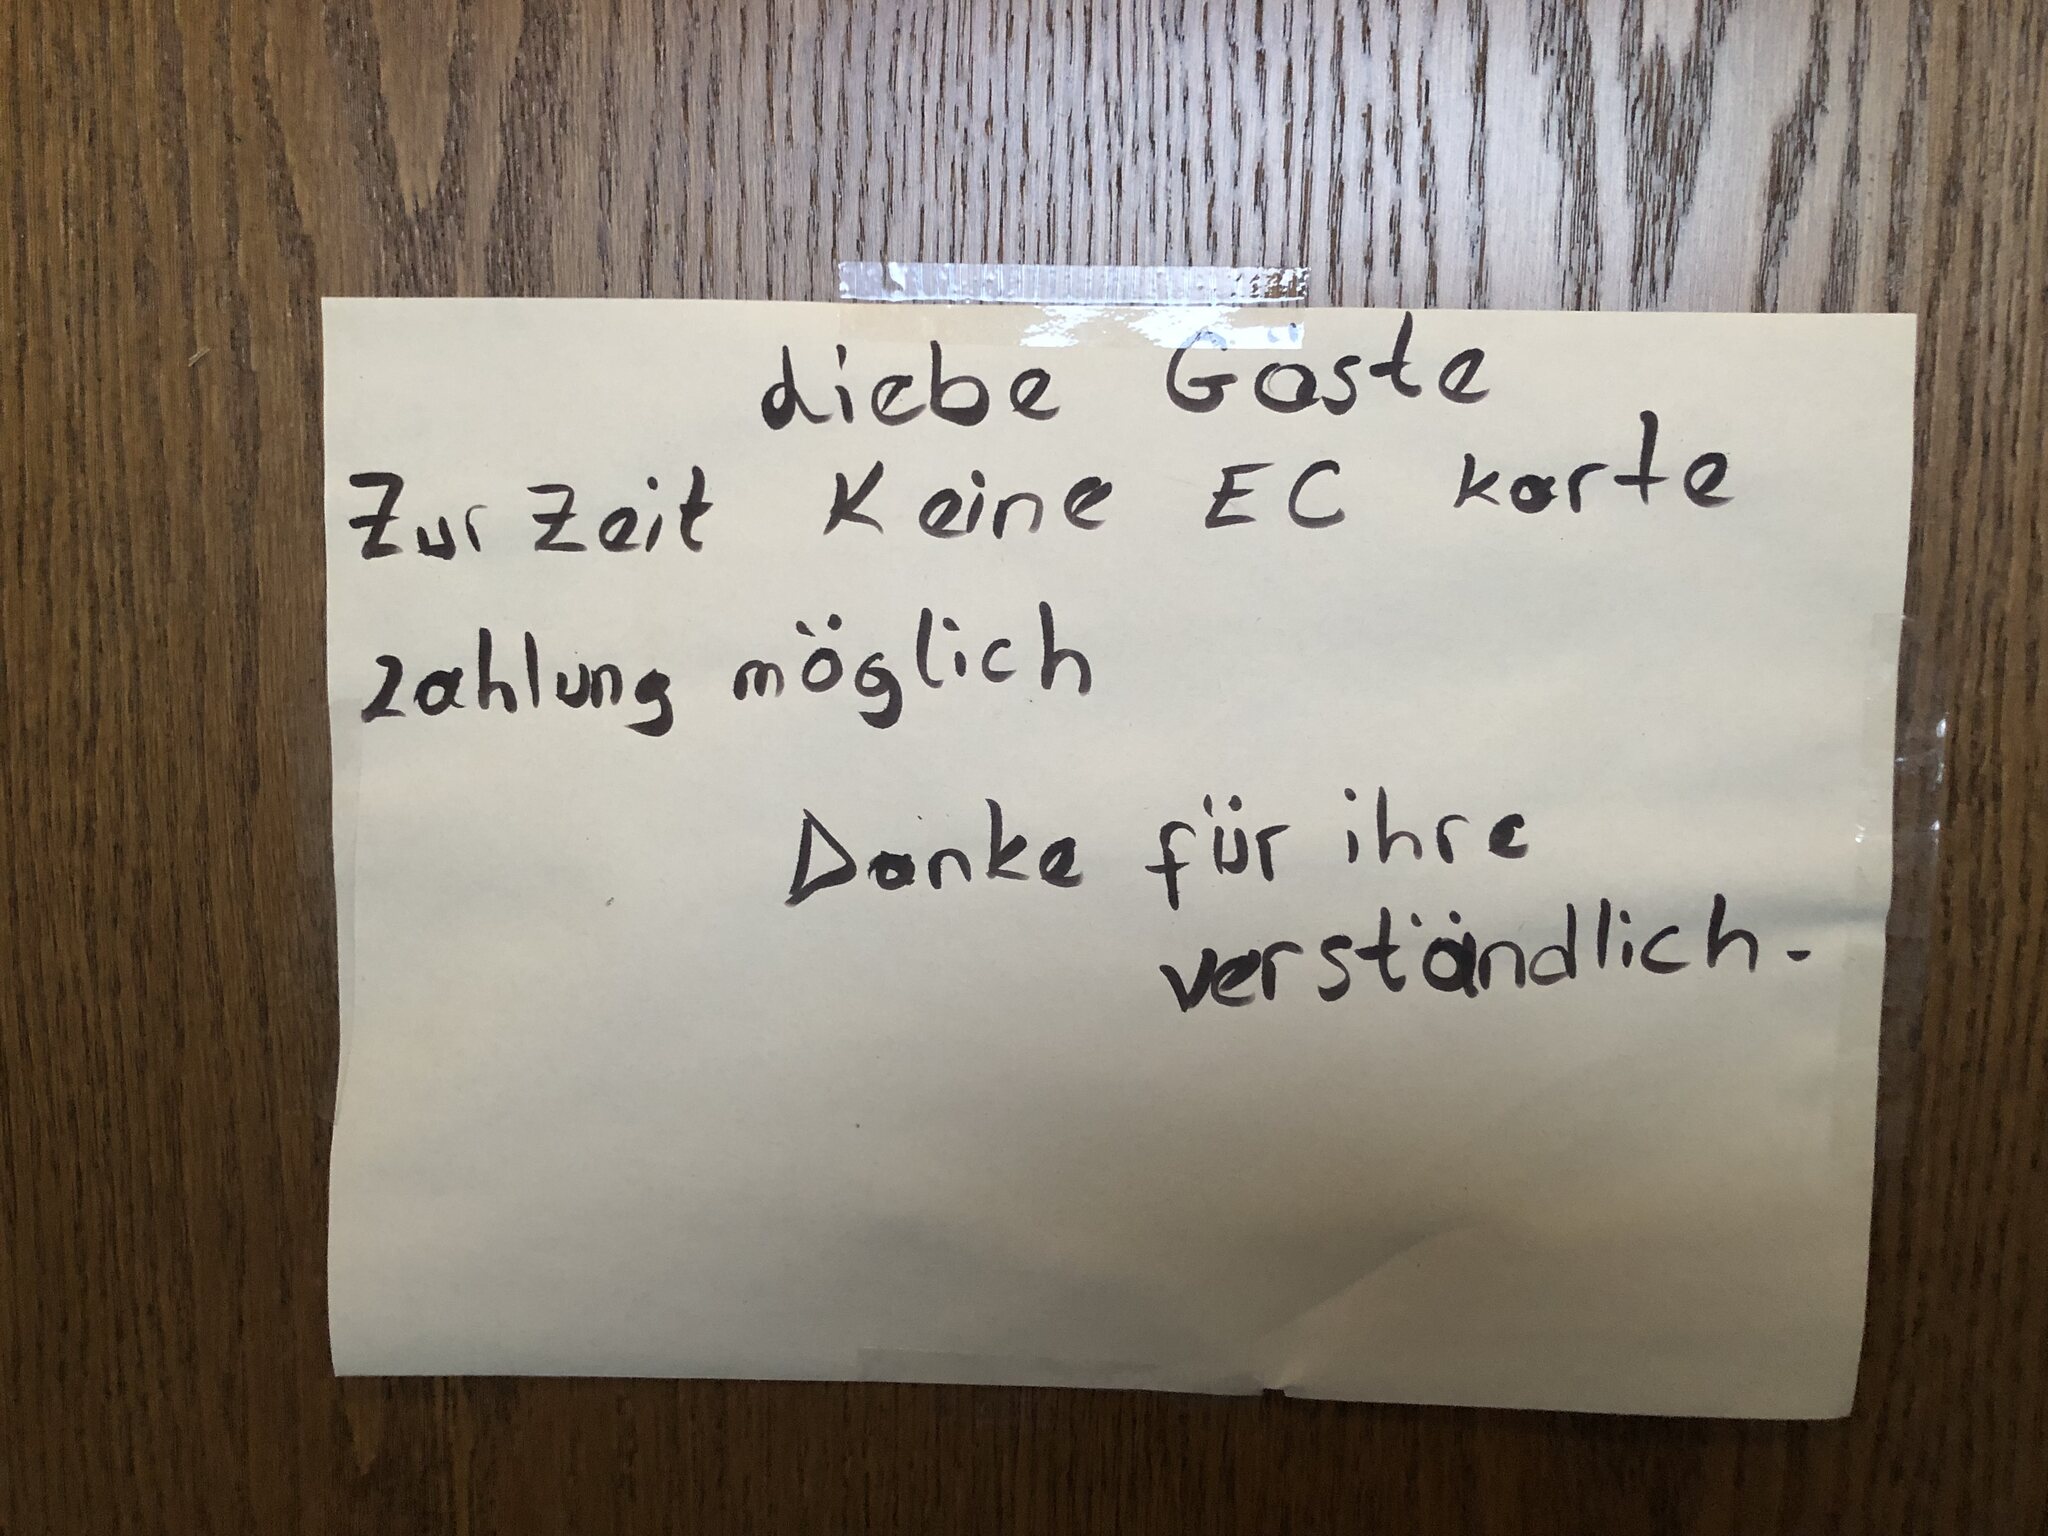 Liebe Gäste
Zur Zeit Keine EC karte
zahlung möglich
Danke für ihre
verständlich.